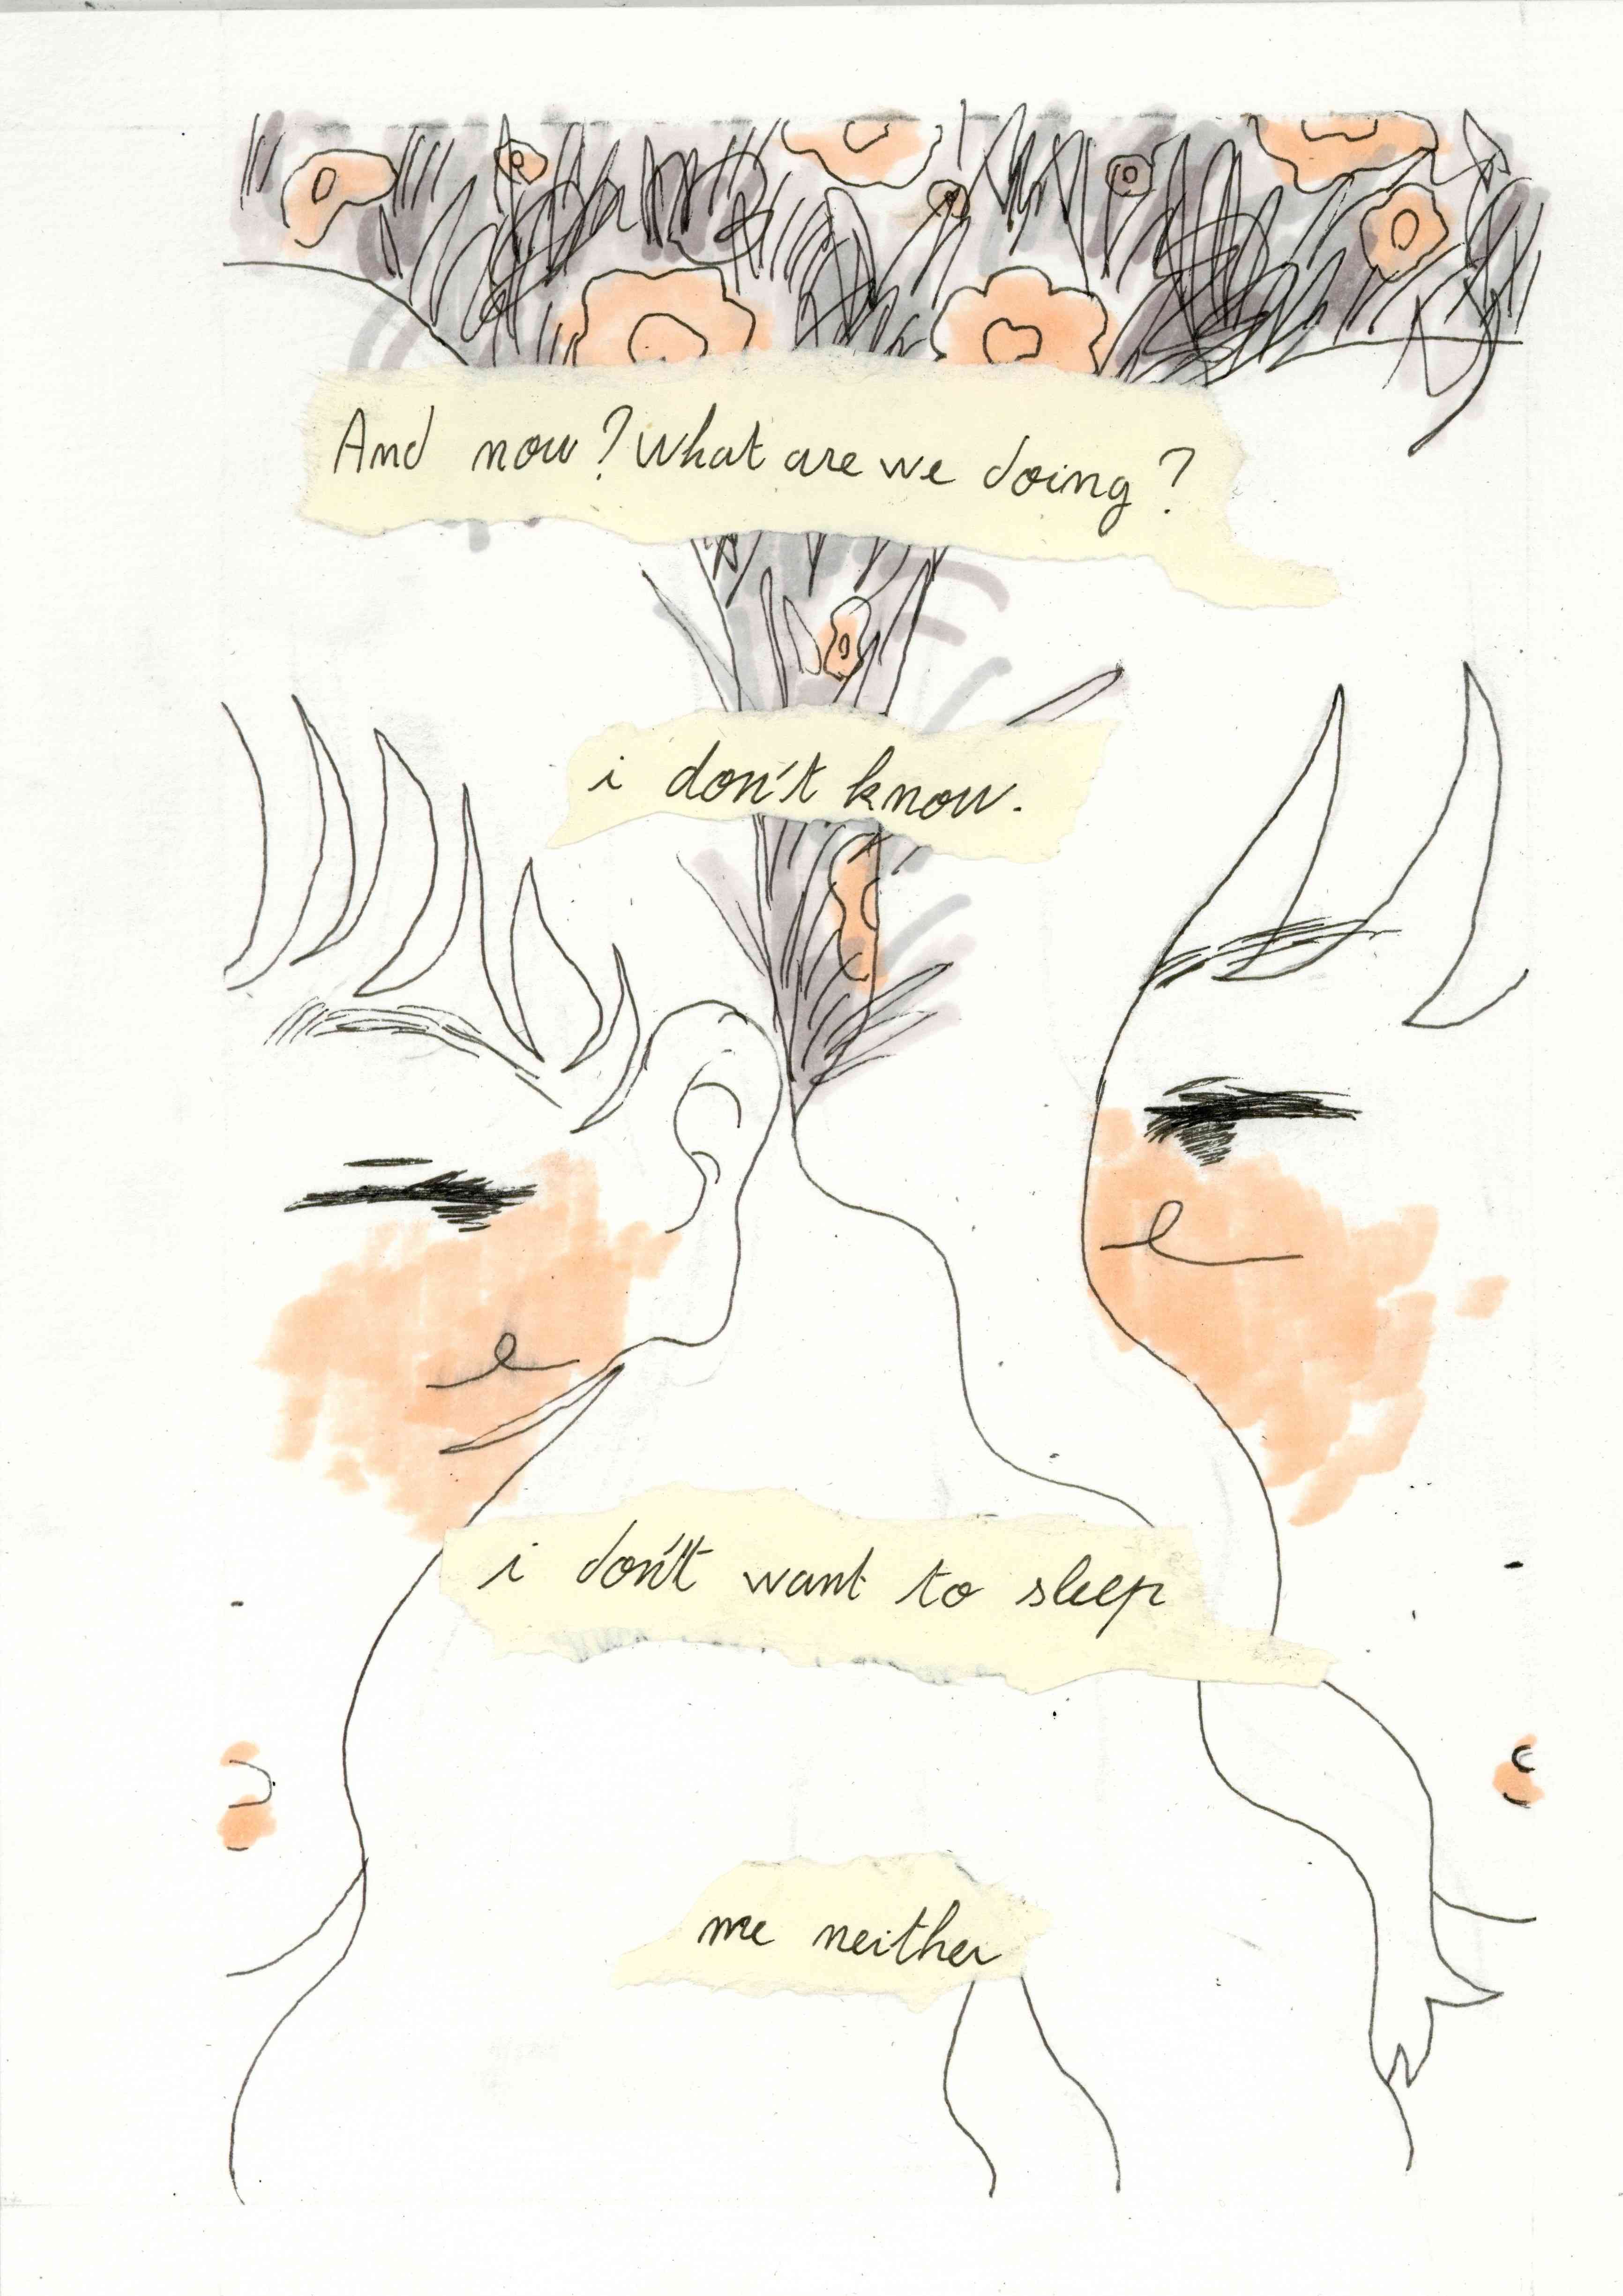 And now? What are we doing?
i don't know.
i don't want to sleep
me neither